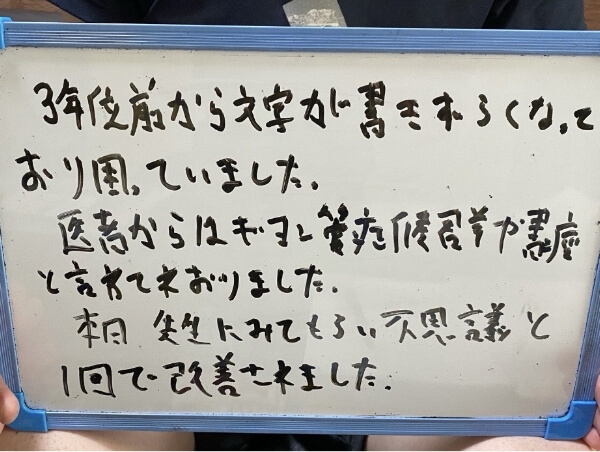 3年位前から文字が書きずらくなって
おり困っていました。
医者からはギヨン管症候群か
と言われておりました。
本日先生にみてもらい不思議と
1回で改善されました。